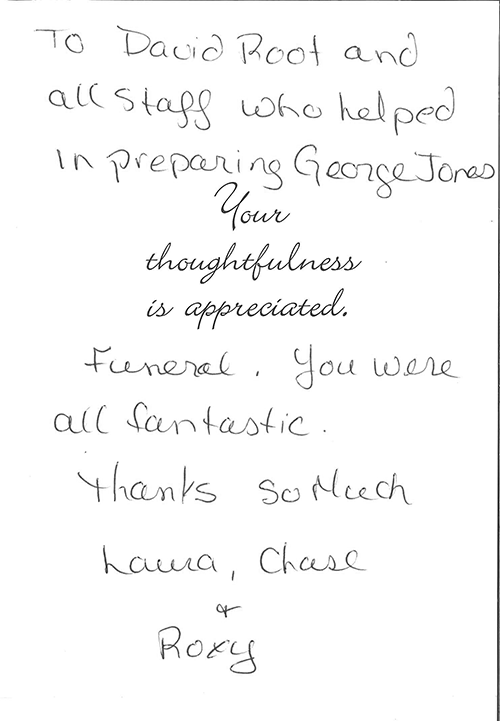 To David Root and
all staff who helped
in preparing George Jones
Your
thoughtfulness
is appreciated.
Funeral. You were
all fantastic.
Thanks So Much
Laura, Chase
&
Roxy